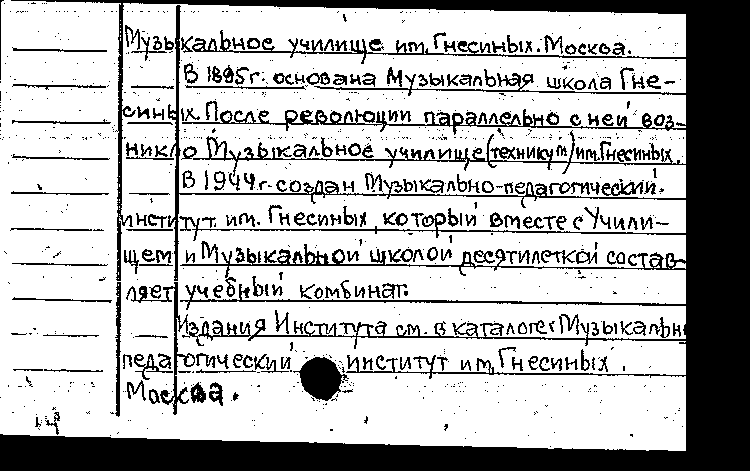 Музыкальное училище им. Гнесиных. Москва.
В 1895 г. основана Музыкальная школа Гне-
синых. После революции параллельно с ней воз-
никло Музыкальное училище (техникум) им. Гнесиных.
В 1944 г. создан Музыкально-педагогический
институт им. Гнесиных, который вместе с Учили-
щем и Музыкальной школой десятилеткой состав-
ляет учебный комбинат.
Издания Института см. в каталоге: Музыкальн
педагогический институт им. Гнесиных.
Москва.